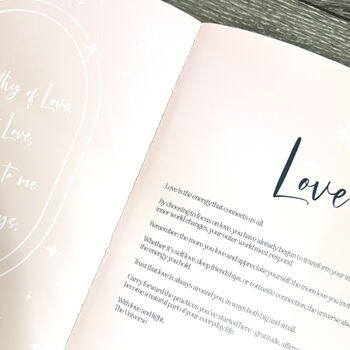 thy of Love,
Love,
to me
ys.
Love
Love is the energy that connects us all.
By choosing to focus on love, you have already begun to transform your
inner world changes, your outer world must respond.
Remember: the more you love and appreciate yourself, the more love you
Whether it's self love, deep friendships, or romantic connection, the universe
the energy you hold.
Trust that love is always around you, in ways both big and small.
Carry forward the practices you've started here - gratitude,
become a natural part of your everyday life.
With love and light,
The Universe